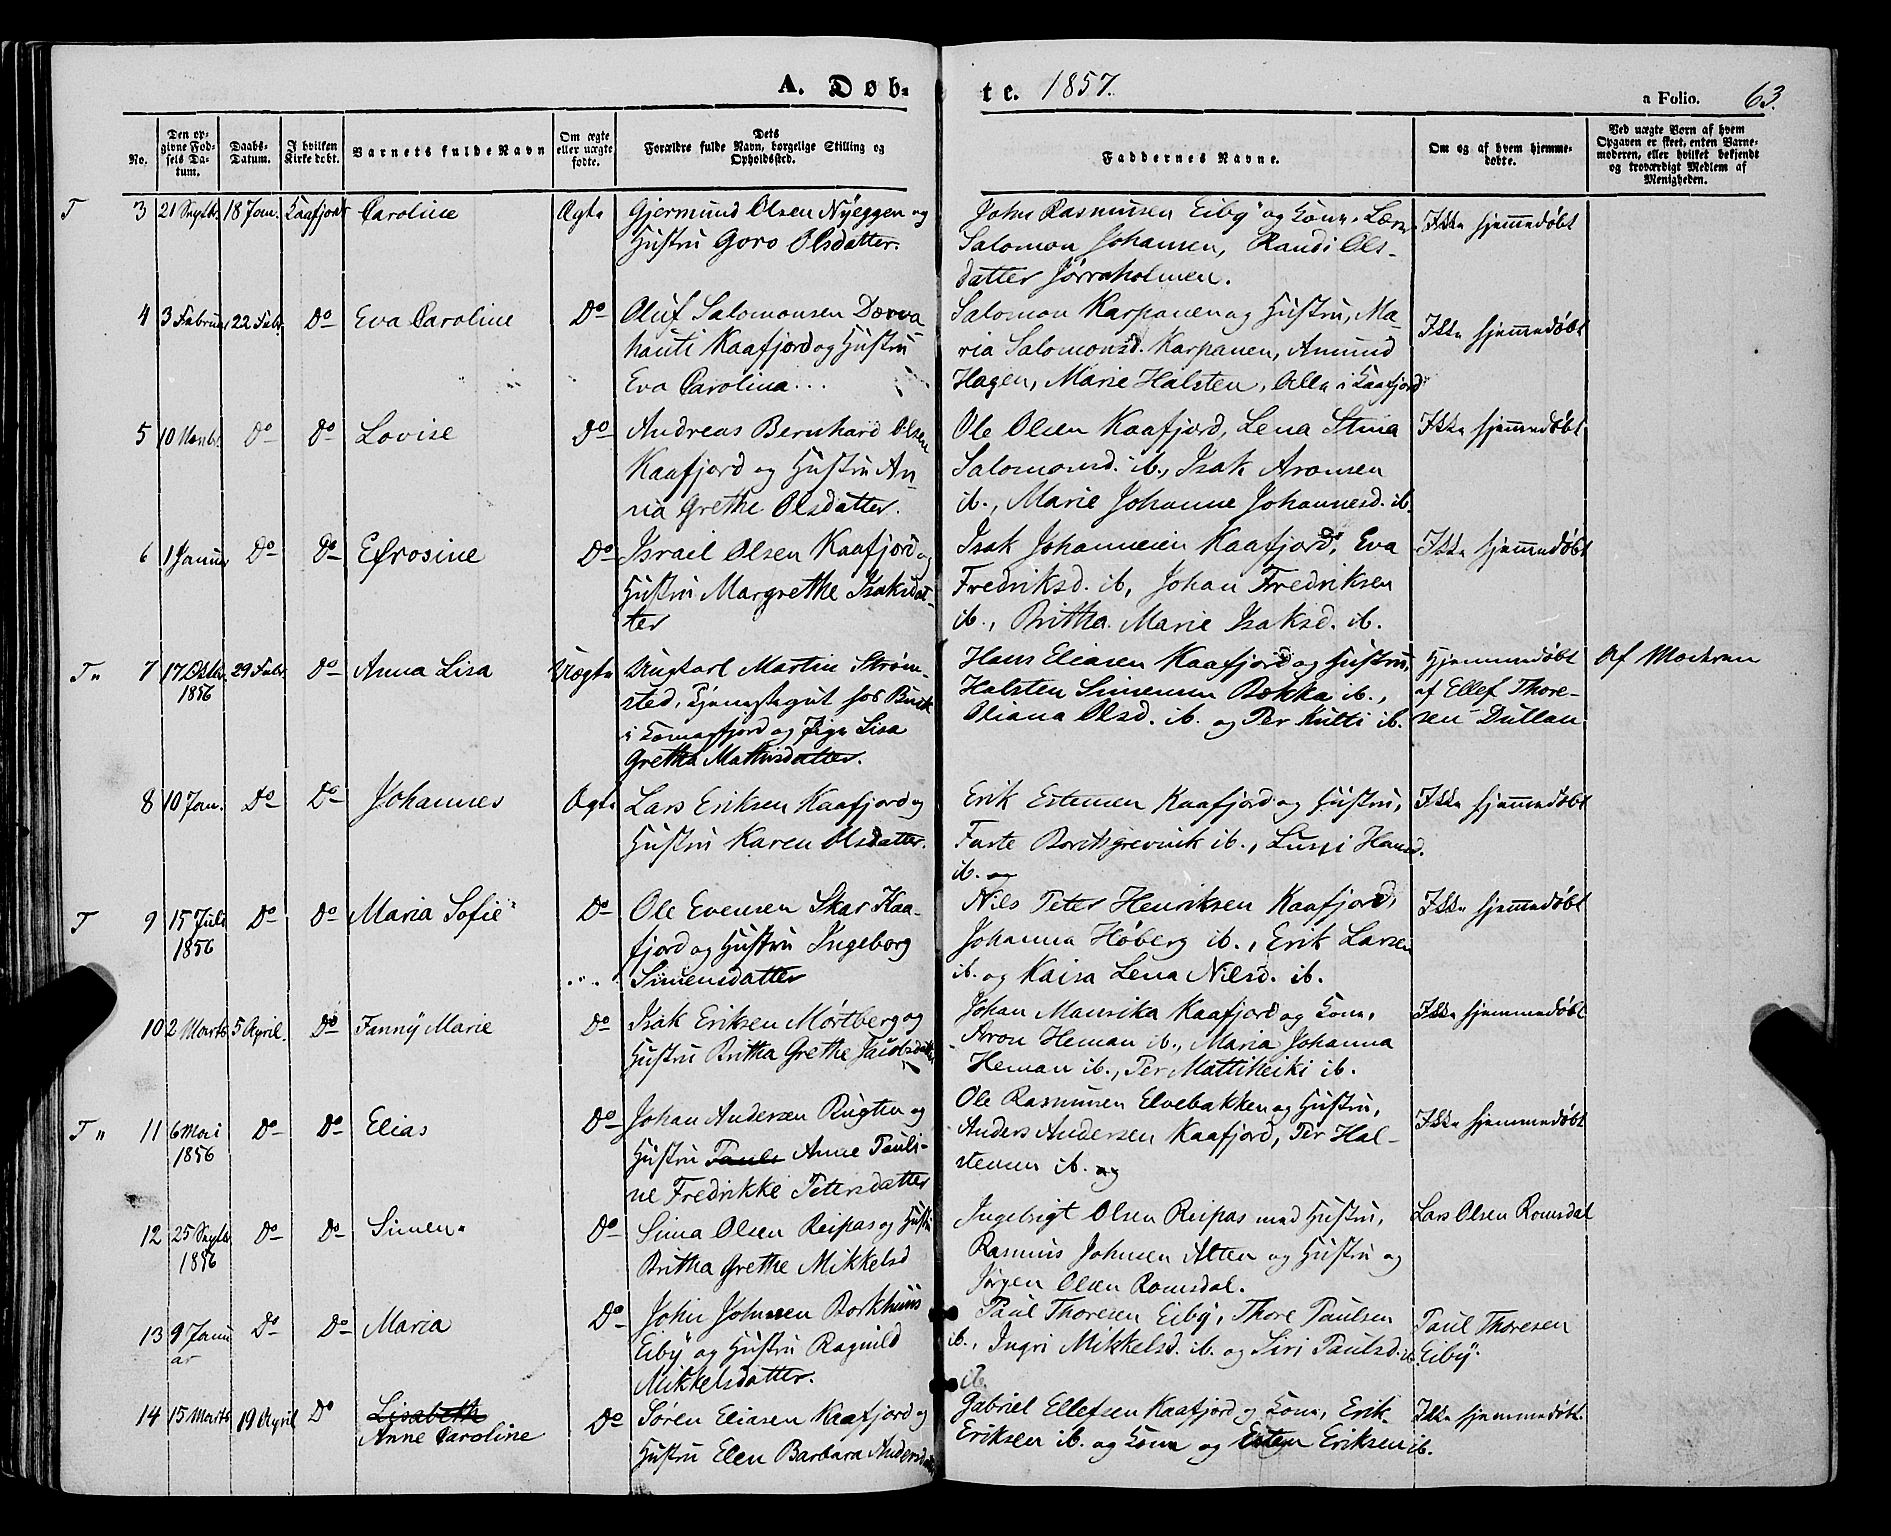 A. Døb-
te. 1857.
a Folio. 63.
No.
Den op-
givne Fød-
sels Da-
tum.
Daabs-
Datum.
I hvilken
Kirke døbt.
Barnets fulde Navn
Om ægte
eller uægte
fødte.
Dets
Forældre fulde Navn, borgelige Stilling og
Opholdssted.
Faddernes Navne.
Om og af hvem hjemme-
døbte.
Ved uægte Børn af hvem
Opgaven er skeet, enten Barne-
moderen, eller hvilket bekjendt
og troværdigt Medlem af
Menigheden.
T 3 21 Septb. 18 Jan. Kaafjord Caroline Ægte
Gjermund Olsen Nyeggen og
Hustru Goro Olsdatter.
John Rasmusen Eiby og Kone,
Salomon Johansen, Randi Ols-
datter Jørraholmen.
Ikke hjemmedøbt
4 3 Februar 22 Febr. Do Eva Caroline Do
Oluf Salomonsen
Kaafjord og Hustru
Eva Carolina
Salomon Karpanen og Hustru, Ma-
ria Salomonsd. Karpanen, Amund
Hagen, Marie Halsten, Alle i Kaafjord
Ikke hjemmedøbt
5 10 Do Do Lovise Do
Andreas Bernhard Olsen
Kaafjord og Hustru An-
na Grethe Olsdatter.
Ole Olsen Kaafjord, Lena Stina
Salomonsd. ib., Isak Aronsen
ib., Marie Johanne Johannesd. ib.
Ikke hjemmedøbt
6 1 Januar Do Do Efrosine Do
Israel Olsen Kaafjord og
Hustru Margrethe Isaksdat-
ter
Isak Johannesen Kaafjord, Eva
Fredriksd. ib, Johan Fredriksen
ib., Britha Marie Isaksd. ib.
Ikke hjemmedøbt
T" 7 17 Oktbr. 29 Febr. Do Anna Lisa Uægte
1856
Ungkarl Martin Strøm-
sted, Tjenestegut hos Buck
i Komagfjord og Pige Lisa
Grethe Mathisdatter.
Hans Eliasen Kaafjord og Hustru,
Halsten Simensen Bækka ib.,
Oliana Olsd. ib. og Per Kulti ib.
Hjemmedøbt
af Ellef Thore-
sen
Af Moderen
8 10 Jan. Do Do Johannes Ægte
Lars Eriksen Kaafjord og
Hustru Karen Olsdatter.
Erik Estensen Kaafjord og Hustru,
ib., Hansd.
ib. og
Ikke hjemmedøbt
T 9 15 Juli Do Do Maria Sofie Do
1856
Ole Evensen Skar Kaa-
fjord og Hustru Ingeborg
Simensdatter
Nils Peter Henriksen Kaafjord,
Johanna Høberg ib., Erik Larsen
ib. og Kaisa Lena Nilsd. ib.
Ikke hjemmedøbt
10 2 Marts 5 April. Do Fanny Marie Do
Isak Eriksen Mørtberg og
Hustru Britha Grethe Jacobsdatter
Johan Mansika Kaafjord og Kone,
Aron Heman ib., Maria Johanna
Heman ib., Per Mattiheiki ib.
Ikke hjemmedøbt
T" 11 6 Mai Do Do Elias Do
1856
Johan Andersen Rugten og
Hustru Pauli Anne Pauli-
ne Fredrikke Petersdatter
Ole Rasmusen Elvebakken og Hustru,
Anders Andersen Kaafjord, Per Hal-
stensen ib. og
Ikke hjemmedøbt
12 25 Septbr Do Do Simen Do
1856
Sima Olsen Reipas og Hustru
Britha Grethe Mikkelsd
Ingebrigt Olsen Reipas med Hustru,
Rasmus Johnsen Alten og Hustru og
Jørgen Olsen Romsdal.
Lars Olsen Romsdal
13 9 Janu- Do Do Maria Do
ar
John Johnsen Borkhuus
Eiby og Hustru Ragnild
Mikkelsdatter.
Paul Thoresen Eiby, Thore Paulsen
ib., Ingri Mikkelsd. ib. og Siri Paulsd. ib.
ib.
Paul Thoresen
Eiby.
14 15 Marts 19 April Do Lisabeth Do
Anne Caroline
Søren Eliasen Kaafjord og
Hustru Elen Barbara Andersdatter
Gabriel Ellefsen Kaafjord og Kone, Erik
Eriksen ib. og Kone og Esten Eriksen ib.
Ikke hjemmedøbt.